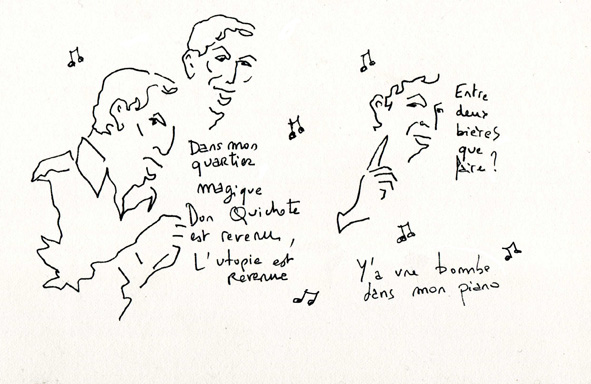 Dans mon
quartier
magique
Don Quichote
est revenu,
L'utopie est
Revenue
Entre
deux
bières
que
dire ?
Y'a une bombe
dans mon piano